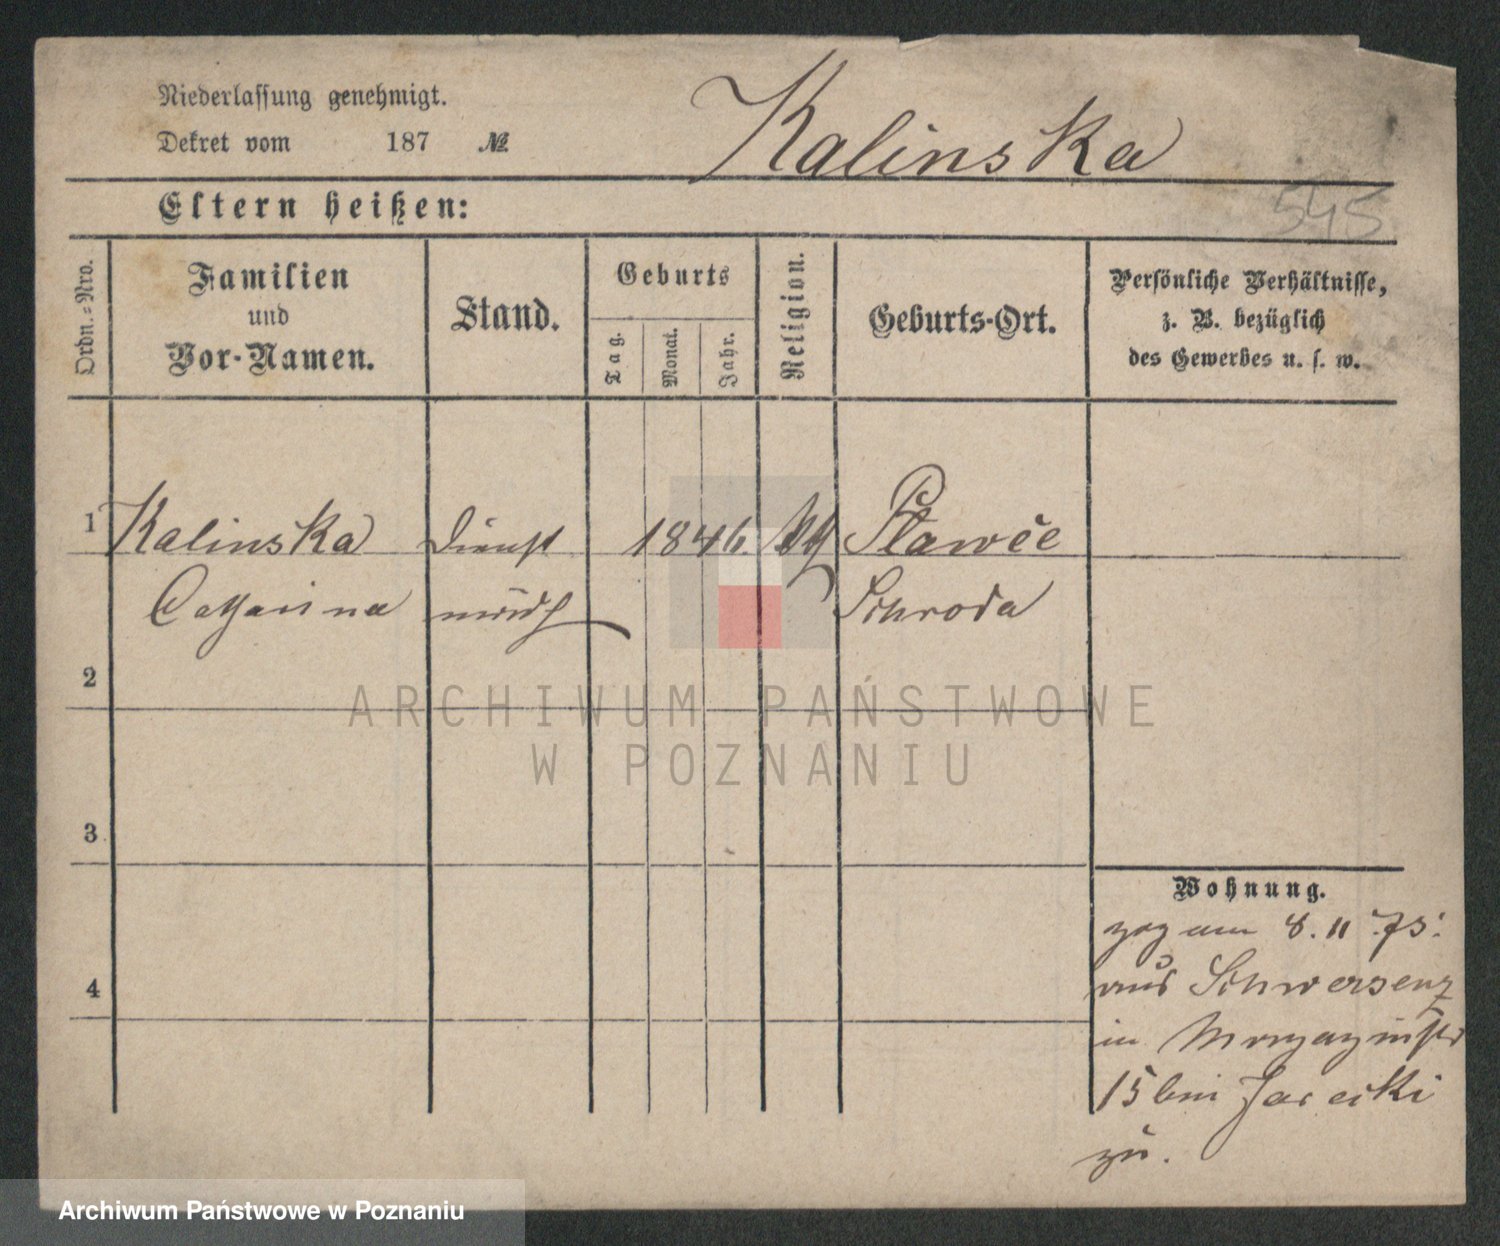 Niederlassung genehmigt.
Dekret vom 187 №
Kalinska
545
Eltern heißen:
Ordn.-Nro.
Familien
und
Vor-Namen.
Stand.
Geburts
Tag.
Monat.
Jahr.
Religion.
Geburts-Ort.
Persönliche Verhältnisse,
z. B. bezüglich
des Gewerbes u. s. w.
1 Kalinska Dienst 1846.
Catharina Schroda
2
ARCHIWUM PAŃSTWOWE
W POZNANIU
3
4
Wohnung.
zog am 8. 11 75.
aus Schwersenz
in Magazinstr
15 bei Jarecki
zu.
Archiwum Państwowe w Poznaniu